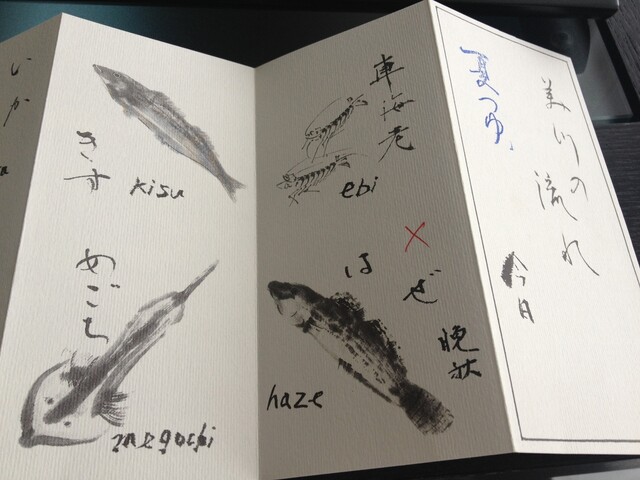 美川の流れ
今日
車海老
ebi
×
はぜ
晩秋
haze
きす
kisu
めごち
megochi
いか